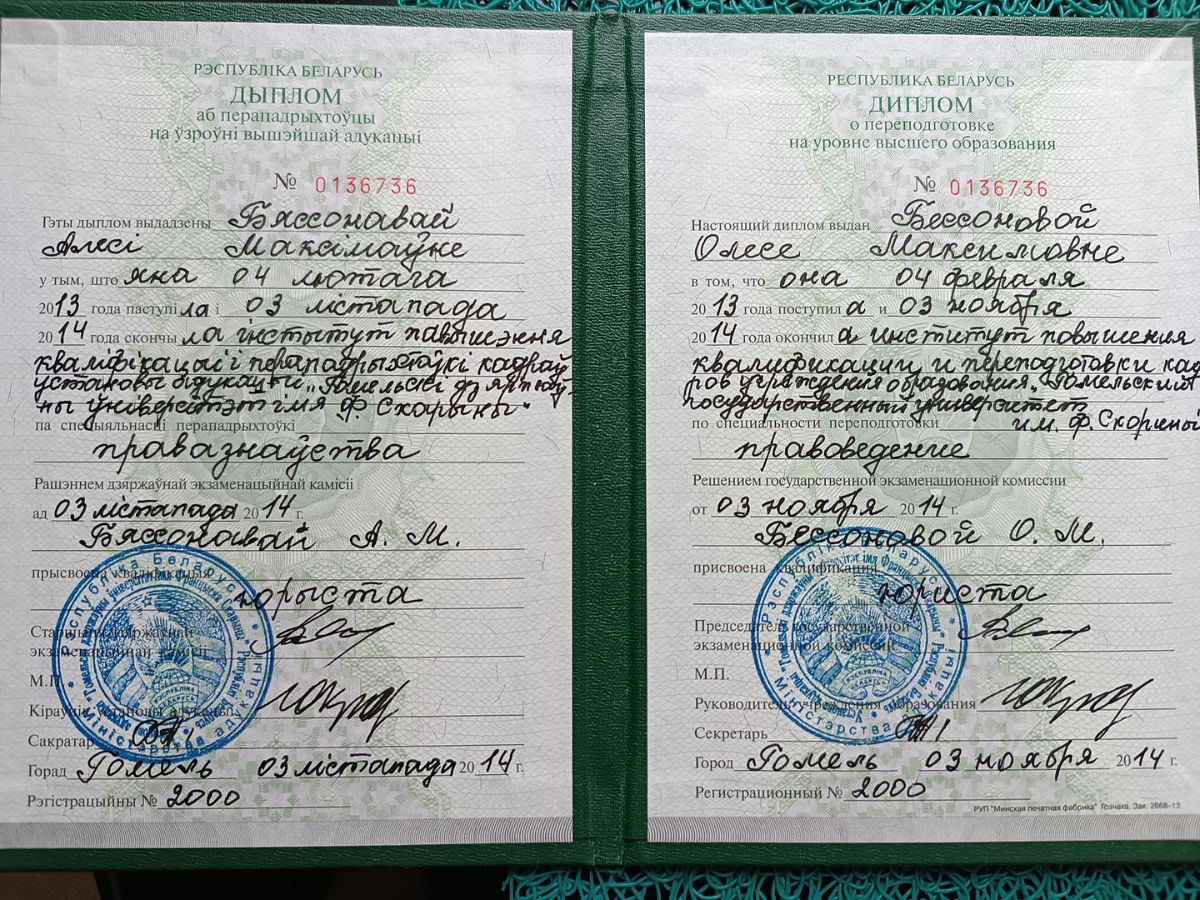 РЭСПУБЛІКА БЕЛАРУСЬ
ДЫПЛОМ
аб перападрыхтоўцы
на ўзроўні вышэйшай адукацыі
№ 0136736
Гэты дыплом выдадзены Бяссонавай
Алесі Максімаўне
у тым, што яна 04 лютага
2013 года паступіла і 03 лістапада
2014 года скончыла інстытут павышэння
кваліфікацыі і перападрыхтоўкі кадраў
установы адукацыі „Гомельскі дзяржаў-
ны ўніверсітэт імя Ф. Скарыны"
па спецыяльнасці перападрыхтоўкі
правазнаўства
Рашэннем дзяржаўнай экзаменацыйнай камісіі
ад 03 лістапада 2014 г.
Бяссонавай А. М.
прысвоена кваліфікацыя
юрыста
Старшыня дзяржаўнай
экзаменацыйнай камісіі
М.П.
Кіраўнік установы адукацыі
Сакратар
Горад Гомель 03 лістапада 2014 г.
Рэгістрацыйны № 2000
РЕСПУБЛИКА БЕЛАРУСЬ
ДИПЛОМ
о переподготовке
на уровне высшего образования
№ 0136736
Настоящий диплом выдан Бессоновой
Олесе Максимовне
в том, что она 04 февраля
2013 года поступила и 03 ноября
2014 года окончила институт повышения
квалификации и переподготовки кад
ров учреждения образования „Гомельский
государственный университет
им. Ф. Скорины
по специальности переподготовки
правоведение
Решением государственной экзаменационной комиссии
от 03 ноября 2014 г.
Бессоновой О. М.
присвоена квалификация
юриста
Председатель государственной
экзаменационной комиссии
М.П.
Руководитель учреждения образования
Секретарь
Город Гомель 03 ноября 2014 г.
Регистрационный № 2000
РУП "Минская печатная фабрика" Гознака. Зак. 2868-13